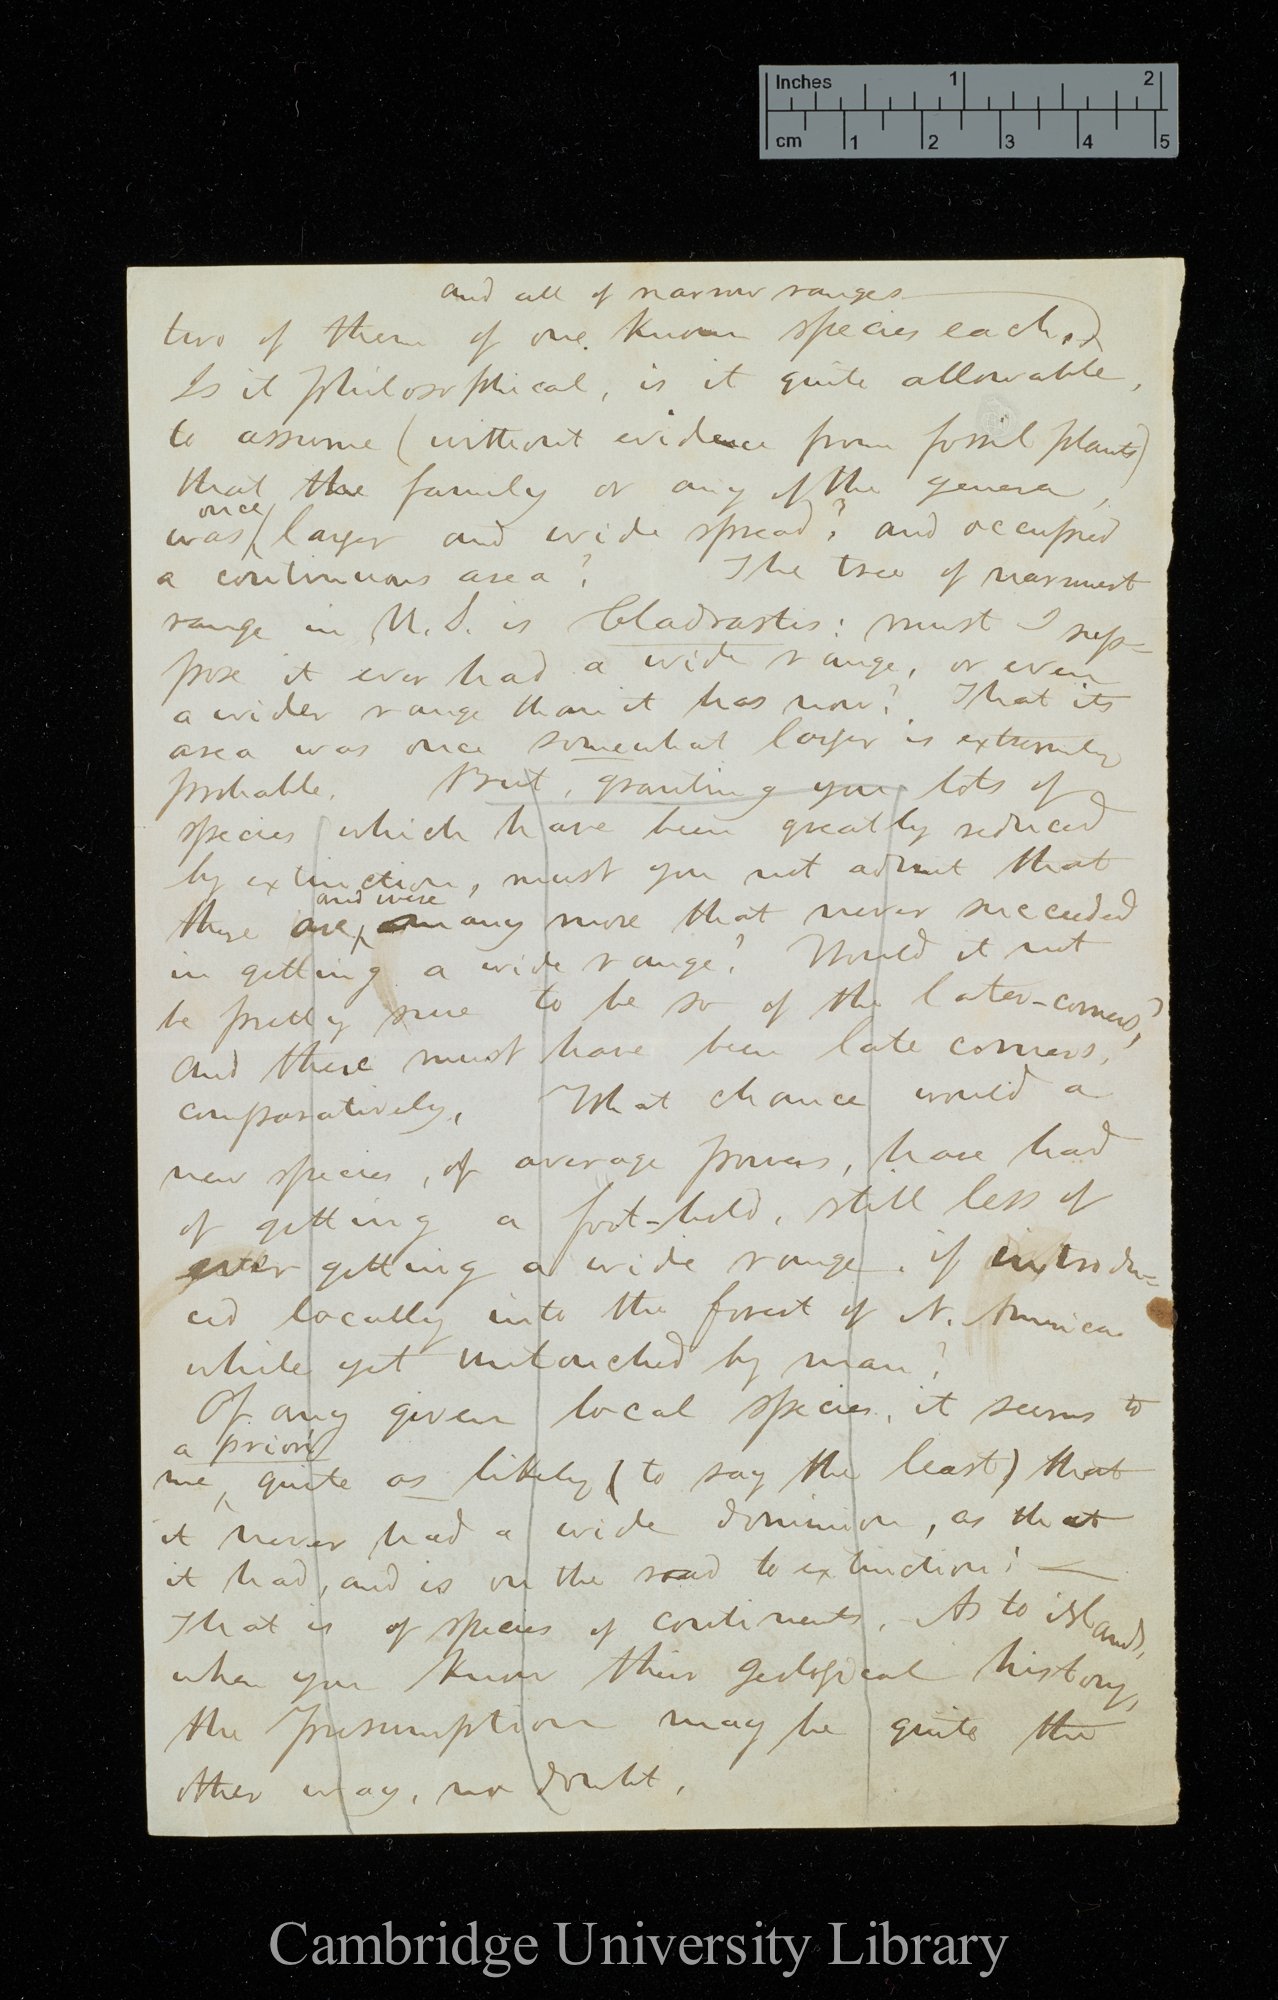 Inches 1 2
cm 1 2 3 4 5
and all of narrow ranges
two of them of one known species each.
Is it philosophical, is it quite allowable,
to assume (without evidence from fossil plants)
that the family or any of the genera,
once
was larger and wide spread? and occupied
a continuous area? The tree of narrowest
range in U.S. is Cladrastis: must I sup-
pose it ever had a wide range, or even
a wider range than it has now? That its
area was once somewhat larger is extremely
probable. But, granting you lots of
species which have been greatly reduced
by extinction, must you not admit that
and were
there are many more that never succeeded
in getting a wide range? Would it not
be pretty sure to be so of the later-comers?
and there must have been late comers,
comparatively. What chance would a
new species, of average powers, have had
of getting a foot-hold, still less of
ever getting a wide range, if introdu-
ced locally into the forest of N. America
while yet untouched by man?
Of any given local species, it seems to
a priori
me quite as likely (to say the least) that
it never had a wide dominion, as that
it had, and is on the road to extinction! —
That is of species of continents. As to islands,
when you know their geological history,
the presumption may be quite the
other way, no doubt.
Cambridge University Library